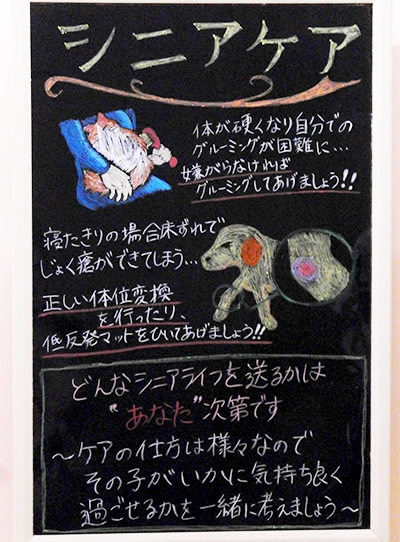 シニアケア
体が硬くなり自分での
グルーミングが困難に…
嫌がらなければ
グルーミングしてあげましょう!!
寝たきりの場合床ずれで
じょく瘡ができてしまう…
正しい体位変換
を行ったり、
低反発マットをひいてあげましょう!!
どんなシニアライフを送るかは
"あなた"次第です
〜ケアの仕方は様々なので
その子がいかに気持ち良く
過ごせるかを一緒に考えましょう〜